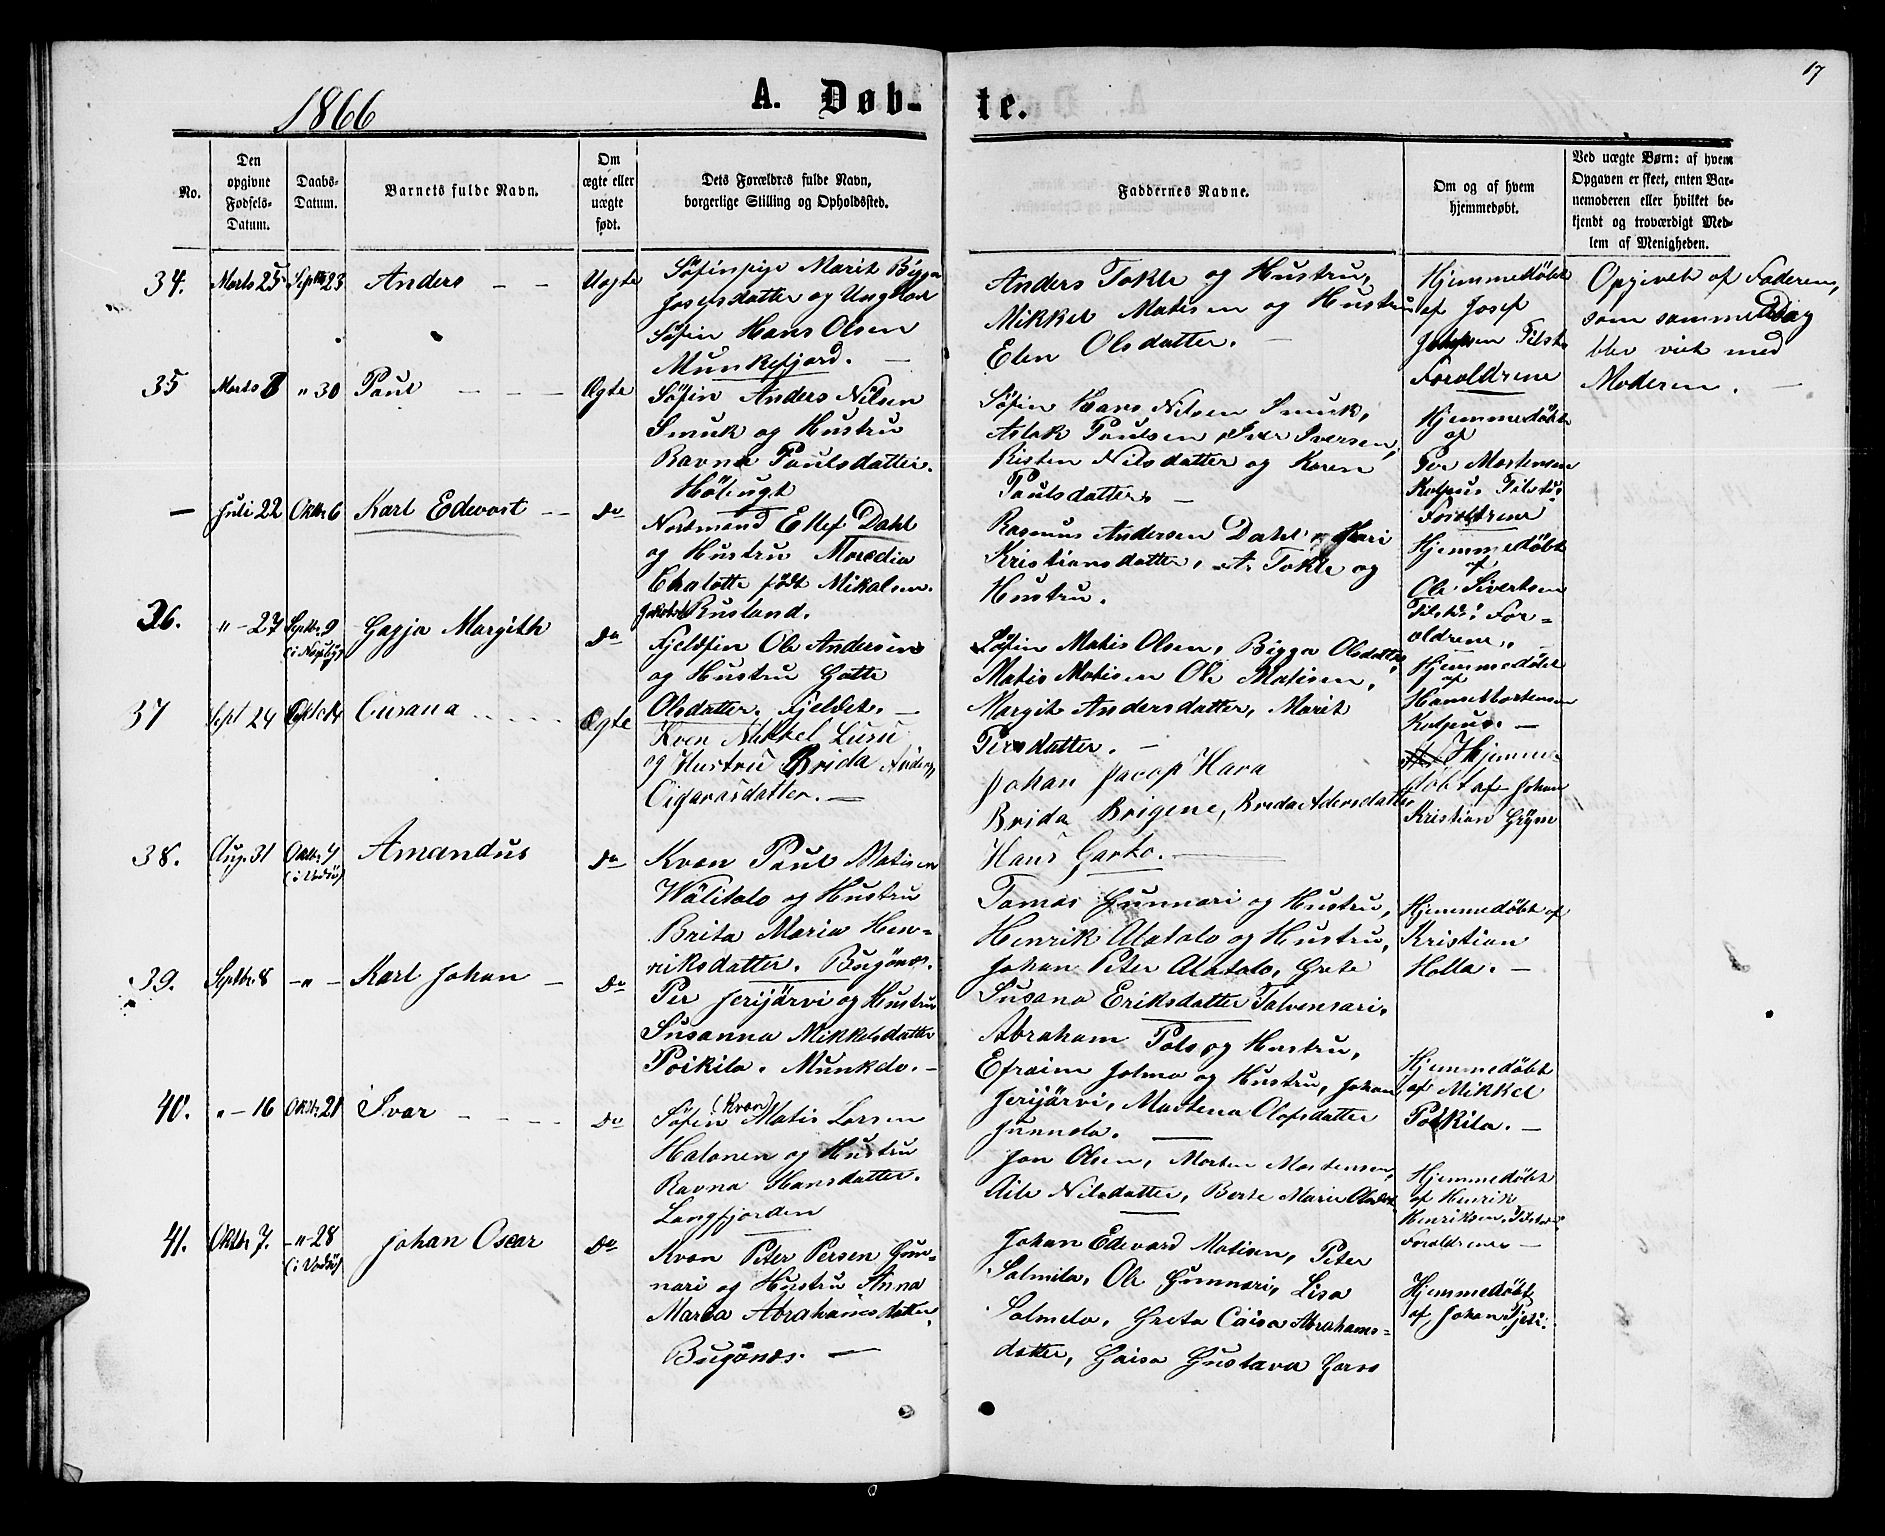 17
1866
A. Døb-
te.
No.
Den
opgivne
Fødsels-
Datum.
Daabs-
Datum.
Barnets fulde Navn.
Om
ægte eller
uægte
født.
Dets Forældres fulde Navn,
borgerlige Stilling og Opholdssted.
Faddernes Navne.
Om og af hvem
hjemmedøbt.
Ved uægte Børn: af hvem
Opgaven er skeet, enten Bar-
nemoderen eller hvilket be-
kjendt og troværdigt Med-
lem af Menigheden.
34.
Marts 25
Septbr 23
Anders
Uægte
Söfinpige Marit Bigga
Josefsdatter og Ungkarl
Söfin Hans Olsen
Munkefjord.
Anders Tokle og Hustru,
Mikkel Matisen og Hustru
Elen Olsdatter.
Hjemmedöbt
af Josef
Tilst.
Forældrene
Opgivet af Faderen,
som samme Dag
blev viet med
Moderen.
35
Marts 8
" 30
Paul
Ægte
Söfin Anders Nilsen
Smuk og Hustru
Ravna Paulsdatter.
Söfin Hans Nilsen Smuk,
Aslak Paulsen, Iver Iversen,
Risten Nilsdatter og Karen
Paulsdatter
Hjemmedöbt
af
Per Mortensen
Kolpus Tilst.
Forældrene
Juli 22
Oktbr 6
Karl Edevart
Do
Nordmand Ellef Dahl
og Hustru
født Mikalsen.
Jakobsel Rusland.
Rasmus Andersen Dahl, Kari
Kristiansdatter, A. Tokle og
Hustru.
Hjemmedöbt
af
Ole Sivertsen
Tilst. For-
ældrene.
36.
" - 27
Septbr. 9
Gagja Margith
Do
Fjeldfin Ole Andersen
og Hustru Gatte
Olsdatter. Fjeldet.
Söfin Matis Olsen, Bigga Olsdatter,
Matis Matisen Ole Matisen,
Margit Andersdatter, Marit
Persdatter.
Hjemmedöbt
af
Hans Mortensen
Kolpus.
37
Sept 24
Cusana
Ægte
Kvæn Mikkel Lusu
og Hustru Brida Anders
Cigarasdatter.
Johan Jacop Hara
Brida Brigene, Breda Adersdatter
Hans Garko.
Hjemme-
döbt af Johan
Kristian Grym
38.
Aug. 31
Oktbr. 7
(i Vadsö)
Amandus
Do
Kvæn Paul Matisen
Wälitalo og Hustru
Brita Maria Hen-
riksdatter. Bugönæs.
Tomas Gunnari og Hustru,
Henrik Alatalo og Hustru,
Johan Peter Alatalo, Grete
Susana Eriksdatter Talvensari.
Hjemmedöbt af
Kristian
Holla.
39.
Septbr. 8
- " -
Karl Johan
Do
Per Jerijärvi og Hustru
Susanna Mikkelsdatter
Poikila. Munkelv.
Abraham Palo og Hustru,
Efraim Jolma og Hustru, Johan
Jerijärvi, Martena Olofsdatter
Junnela.
Hjemmedöbt
af Mikkel
Poikila.
40.
" - 16
Oktbr. 21
Ivar
Do
(Kvæn)
Söfin Matis Larsen
Halonen og Hustru
Ravna Hansdatter.
Langfjorden
Jon Olsen, Morten Mortensen,
Aile Nilsdatter, Berte Marie Olsdat
Hjemmedöbt
af Henrik
Henriksen, Tilst.
Forældrene
41.
Oktbr 7.
- " - 28
(i Vadsö)
Johan Oscar
Do
Kvæn Peter Persen Gun-
nari og Hustru Anna
Maria Abrahamsdatter.
Bugönæs.
Johan Edevard Matisen, Peter
Salmila, Ole Gunnari, Lisa
Salmela, Greta Caisa Abrahams-
datter, Gaisa Gustava Garvo
Hjemmedöbt
af Johan